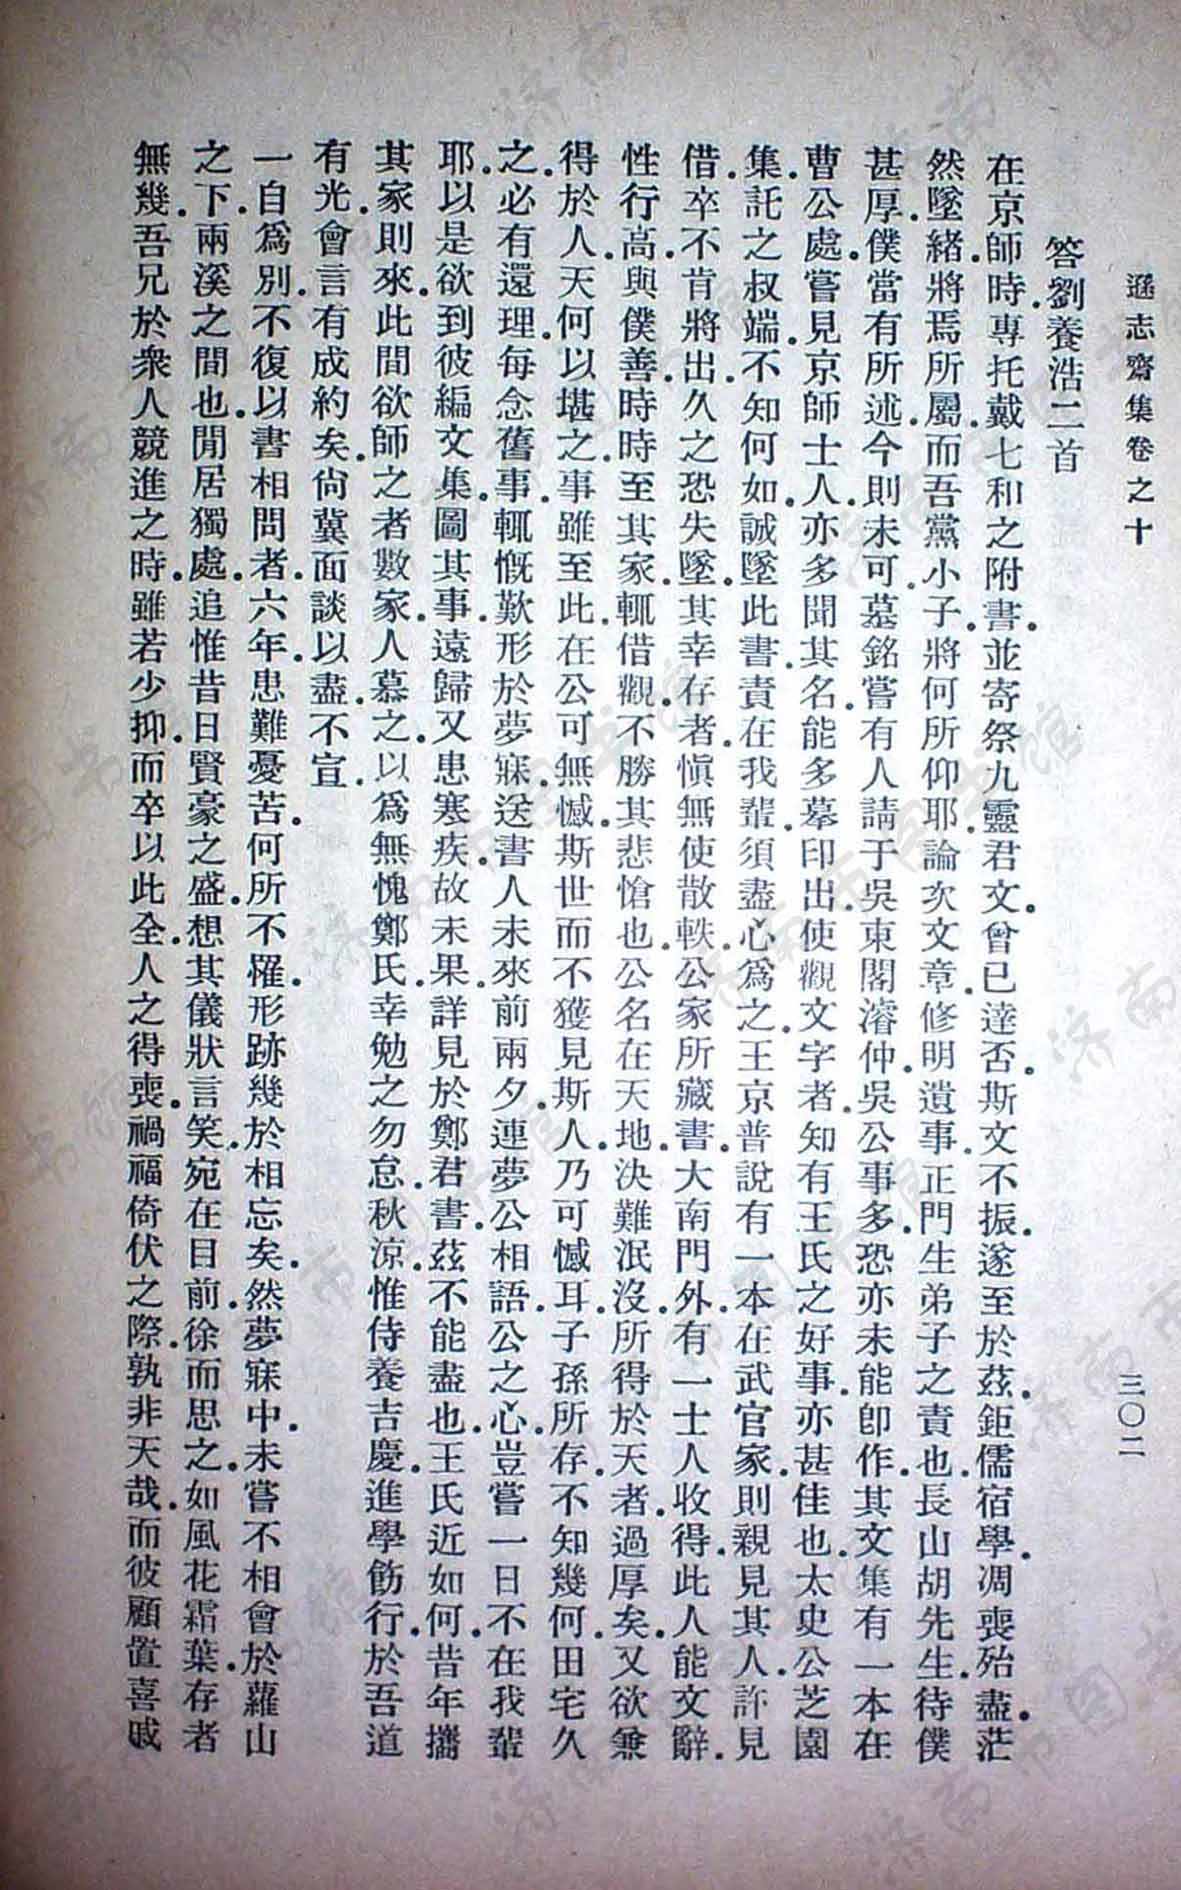 遜志齋集卷之十
三〇二
答劉養浩二首
在京師時專托戴七和之附書並寄祭九靈君文曾已達否斯文不振遂至於茲鉅儒宿學凋喪殆盡茫
然墜緒將焉所屬而吾黨小子將何所仰耶論次文章修明遺事正門生弟子之責也長山胡先生待僕
甚厚僕當有所述今則未可墓銘嘗有人請于吳東閣濬仲吳公事多恐亦未能卽作其文集有一本在
曹公處嘗見京師士人亦多聞其名能多摹印出使觀文字者知有王氏之好事亦甚佳也太史公芝園
集託之叔端不知何如誠墜此書責在我輩須盡心爲之王京普說有一本在武官家則親見其人許見
借卒不肯將出久之恐失墜其幸存者愼無使散軼公家所藏書大南門外有一士人收得此人能文辭
性行高與僕善時時至其家輒借觀不勝其悲愴也公名在天地決難泯沒所得於天者過厚矣又欲兼
得於人天何以堪之事雖至此在公可無憾斯世而不獲見斯人乃可憾耳子孫所存不知幾何田宅久
之必有還理每念舊事輒慨歎形於夢寐送書人未來前兩夕連夢公相語公之心豈嘗一日不在我輩
耶以是欲到彼編文集圖其事遠歸又患寒疾故未果詳見於鄭君書茲不能盡也王氏近如何昔年攜
其家則來此間欲師之者數家人慕之以爲無愧鄭氏幸勉之勿怠秋涼惟侍養吉慶進學飭行於吾道
有光會言有成約矣尙冀面談以盡不宣
一自爲別不復以書相問者六年患難憂苦何所不罹形跡幾於相忘矣然夢寐中未嘗不相會於蘿山
之下兩溪之間也閒居獨處追惟昔日賢豪之盛想其儀狀言笑宛在目前徐而思之如風花霜葉存者
無幾吾兄於衆人競進之時雖若少抑而卒以此全人之得喪禍福倚伏之際孰非天哉而彼顧置喜戚